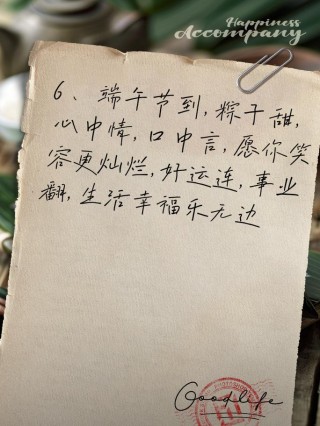 Happiness
Accompany
6、端午节到,粽子甜,
心中情,口中言,愿你笑
容更灿烂,好运连,事业
翻,生活幸福乐无边
Goodlife